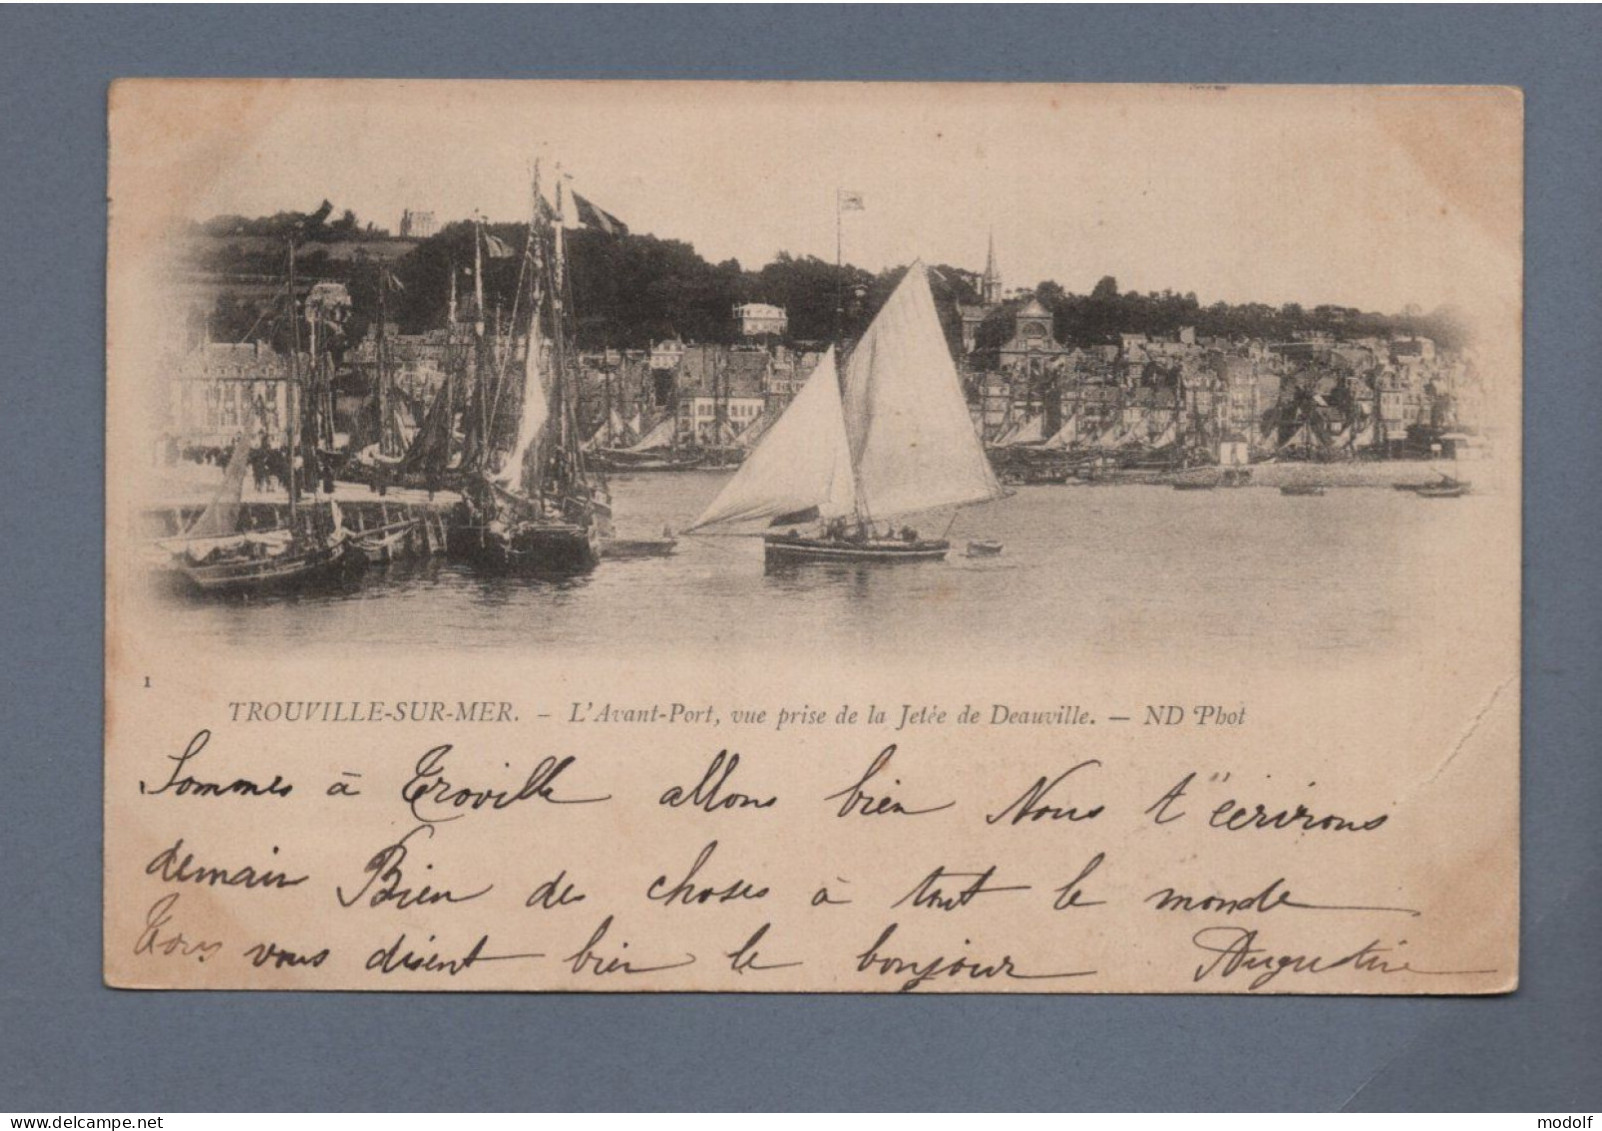 1
TROUVILLE-SUR-MER. – L'Avant-Port, vue prise de la Jetée de Deauville. — ND Phot
Sommes à Troville allons bien Nous t'écrirons
demain Bien des choses à tout le monde
Tous vous disent bien le bonjour Augustine
www.delcampe.net
modolf